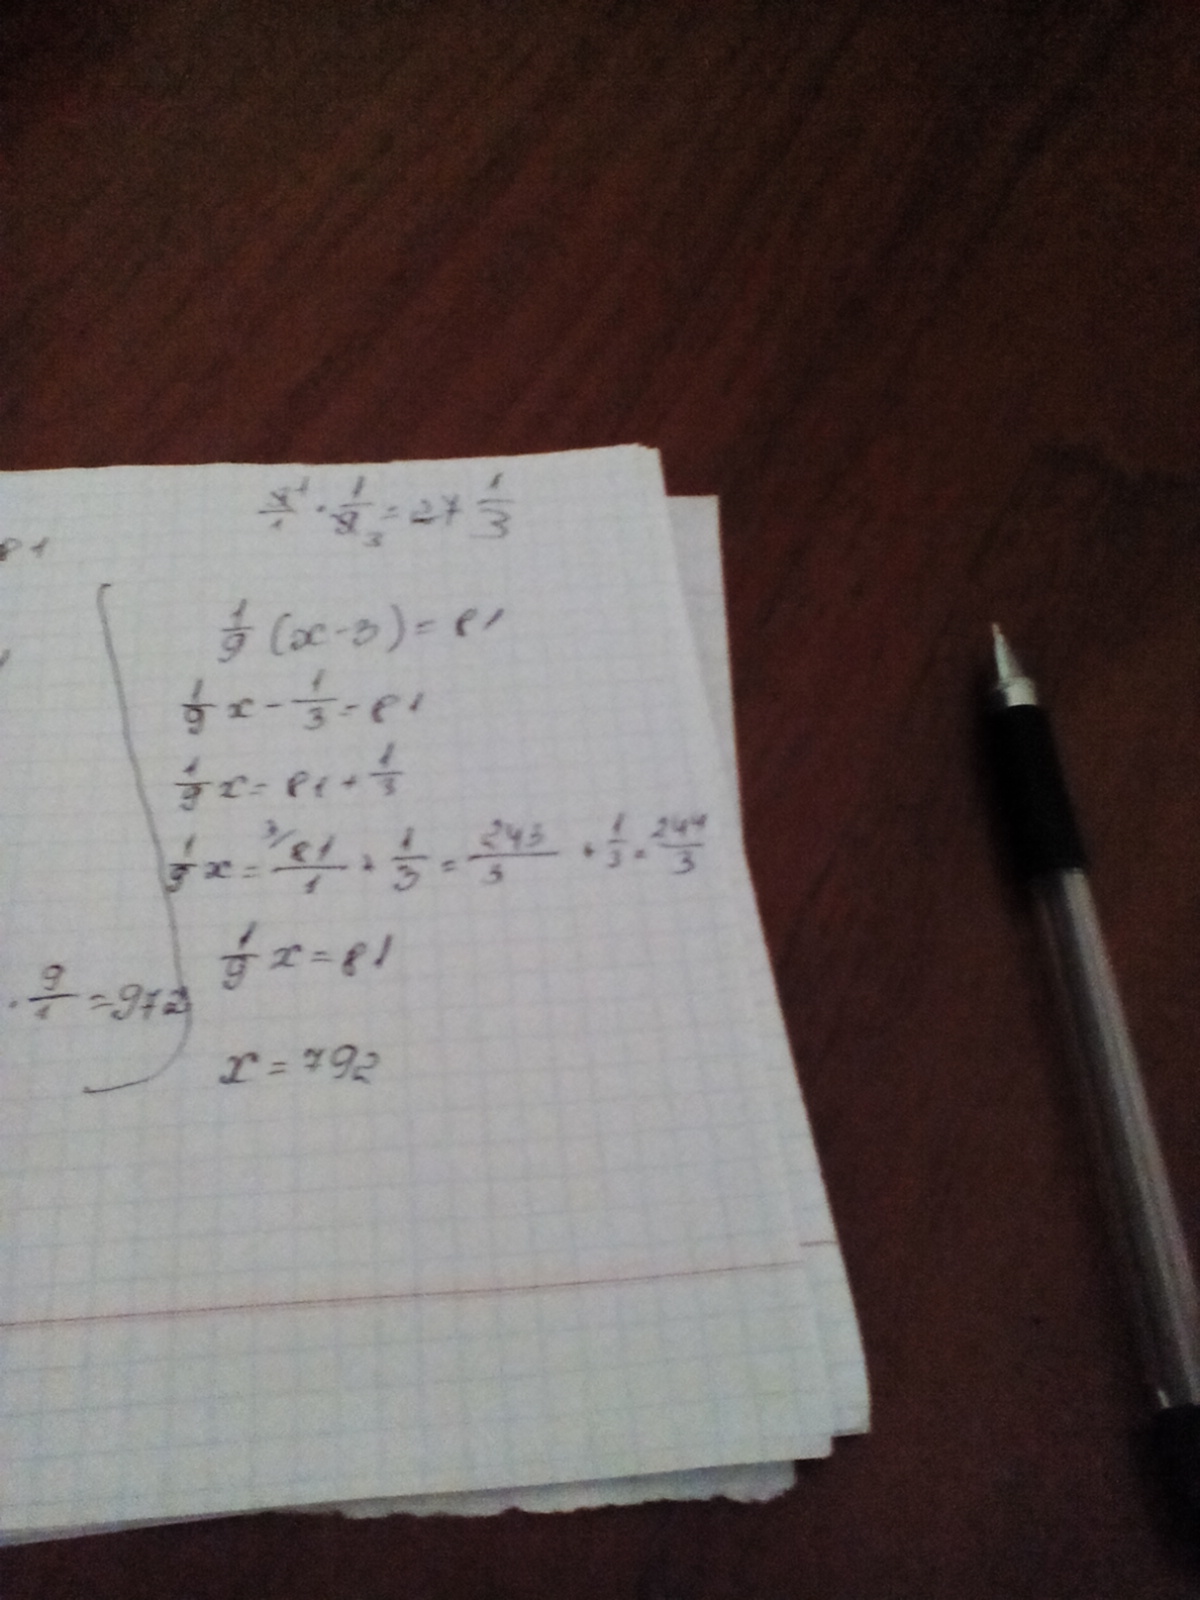 3/1 · 1/9 = 27 1/3
81
1/9 (x - 3) = 81
1/9 x - 1/3 = 81
1/9 x = 81 + 1/3
1/9 x = 81/1 + 1/3 = 243/3 + 1/3 = 244/3
1/9 x = 81
· 9/1 = 972
x = 792